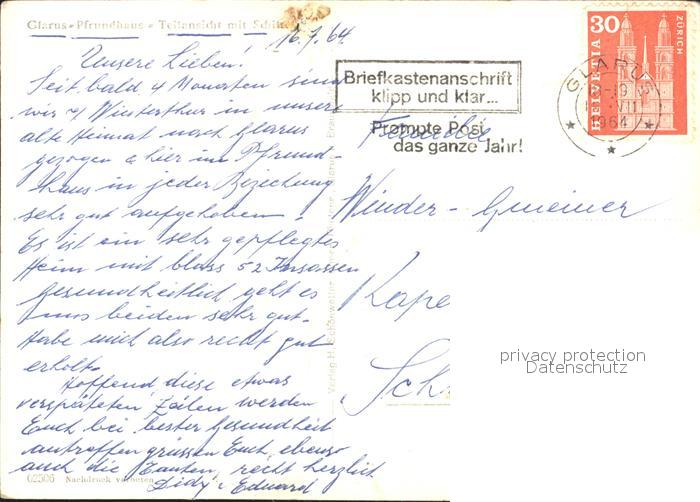 Glarus-Pfrundhaus - Teilansicht mit Schilt
16.7.64.
Unsere Lieben!
Seit bald 4 Monaten sind
wir v/ Winterthur in unsere
alte Heimat nach Glarus
gezogen & hier im Pfrund-
haus in jeder Beziehung
sehr gut aufgehoben.
Es ist ein sehr gepflegtes
Heim mit bloss 52 Insassen
Gesundheitlich geht es
uns beiden sehr gut.
Habe mich also recht gut
erholt.
Hoffend, diese etwas
verspäteten Zeilen werden
Euch bei bester Gesundheit
antreffen grüssen Euch, ebenso
auch die Tanten, recht herzlich
Didy & Eduard
02506 Nachdruck verboten
Verlag H. Schönwetter Glarus
Briefkastenanschrift
klipp und klar...
Prompte Post
das ganze Jahr!
GLARUS
VII
1964
30
HELVETIA
ZÜRICH
Familie
Winder-Gmeiner
Kape
Sch
privacy protection
Datenschutz